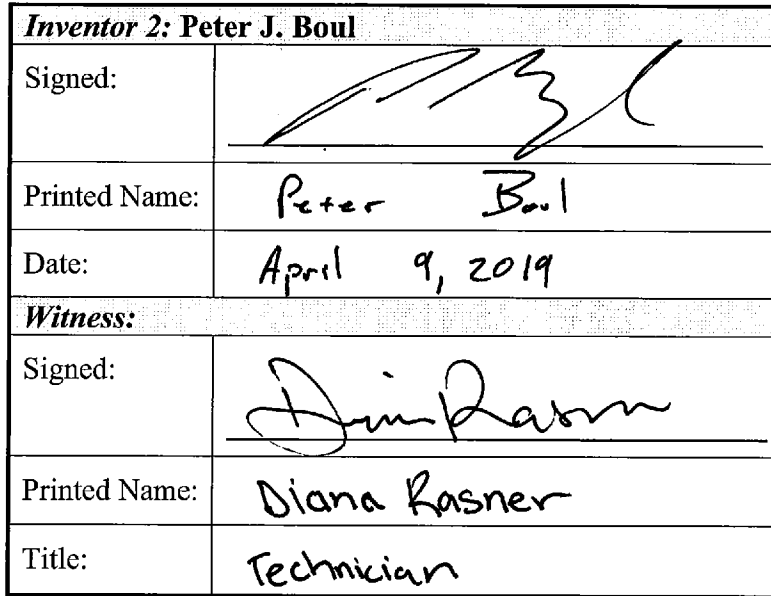 Inventor 2: Peter J. Boul
Signed:
Printed Name: Peter Boul
Date: April 9, 2019
Witness:
Signed: Diana Rasner
Printed Name: Diana Rasner
Title: Technician